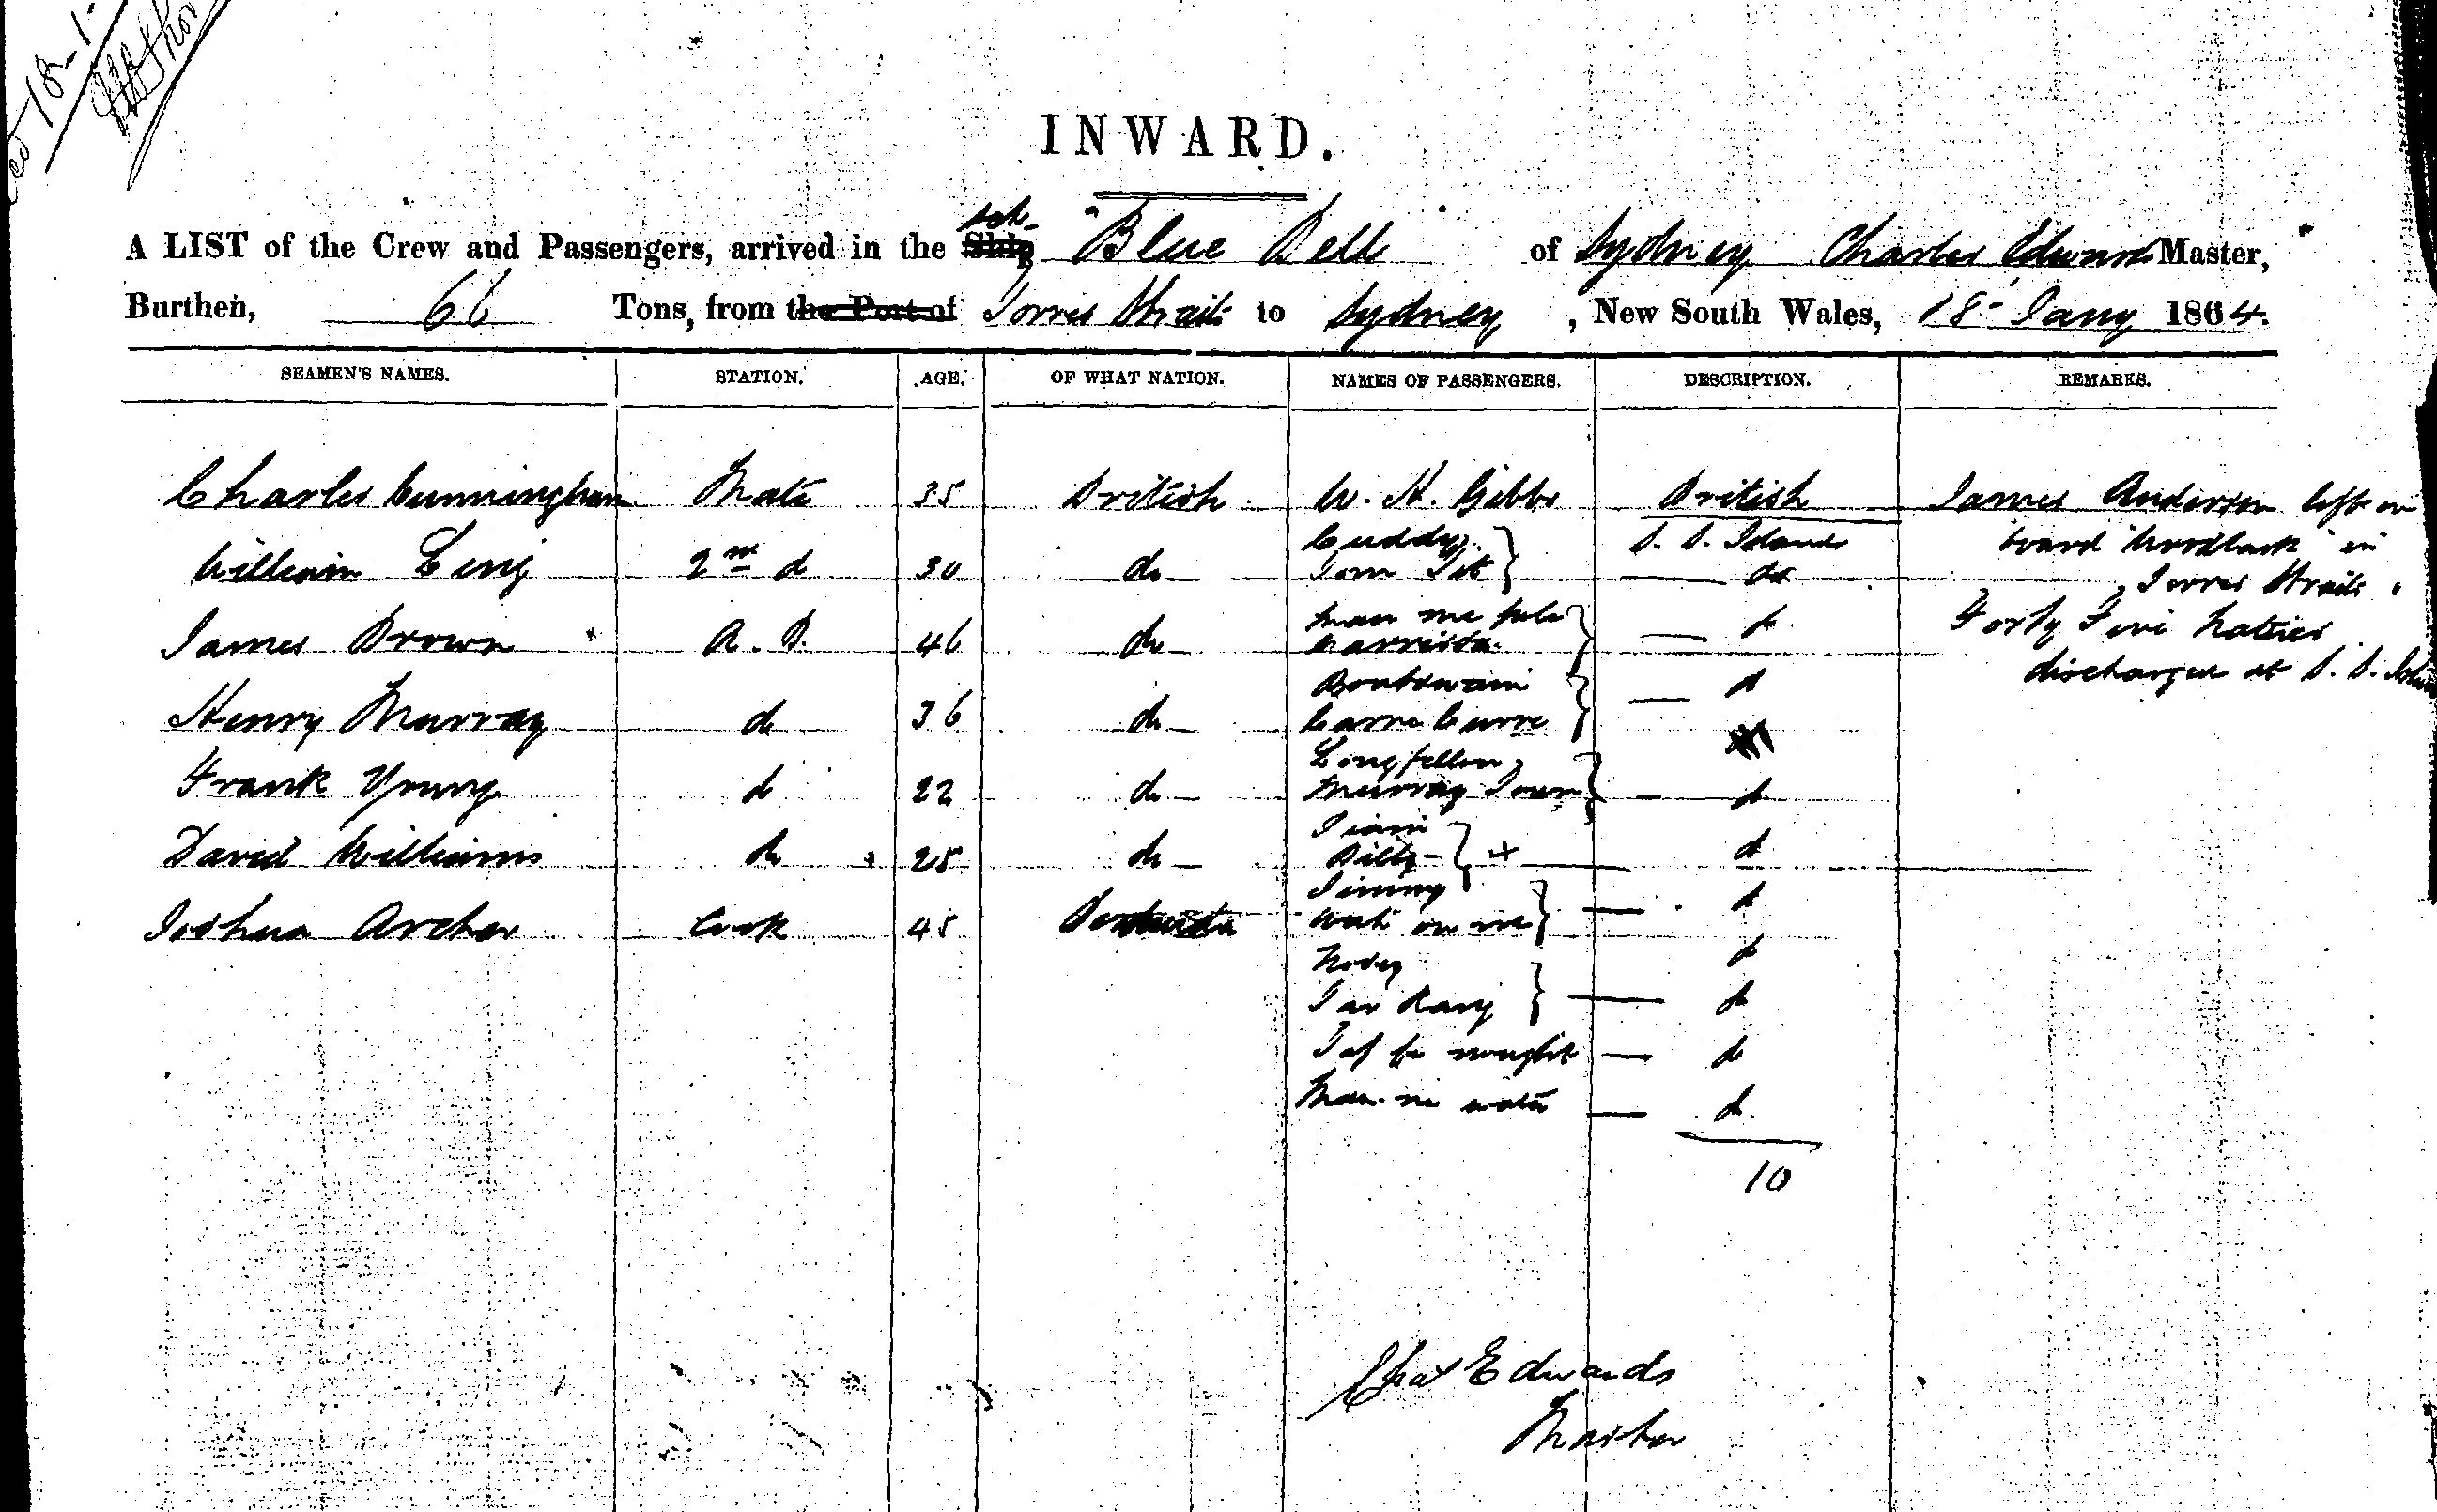 18-1-
INWARD.
A LIST of the Crew and Passengers, arrived in the Ship Sch- "Blue Bell of Sydney Charles Edwards Master,
Burthen, 66 Tons, from the Port of Torres Straits to Sydney, New South Wales, 18- Jany 1864.
SEAMEN'S NAMES. STATION. AGE. OF WHAT NATION. NAMES OF PASSENGERS. DESCRIPTION. REMARKS.
Charles Cunningham Mate 35 British W. H. Gibbs British James Anderson left on
Cuddy S. S. Islands board "Woodlark" in
William Ling 2nd do 30 do Tom Tit do Torres Straits
man me Forty Five Natives
James Brown A. B. 46 do do
discharged at S. S.
Boatswain do
Henry Murray do 36 do
Longfellow
Frank Young do 22 do Murray Town do
David Williams do 25 do Billy - + do
Jimmy do
Joshua Archer Cook 45 wait on me
do
Tar do
do
water do
10
Chas Edwards
Master